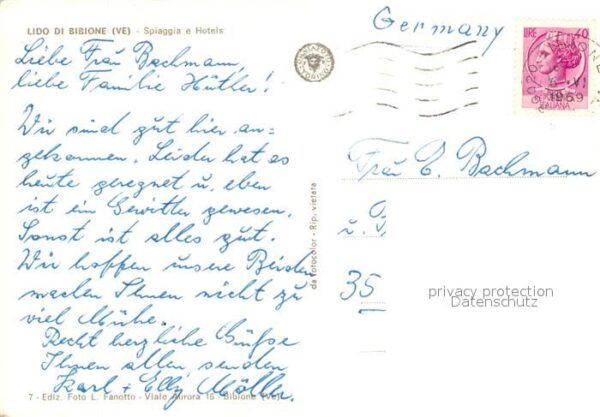 LIDO DI BIBIONE (VE) - Spiaggia e Hotels
Liebe Frau Bachmann,
liebe Familie Hüttler!
Wir sind gut hier an-
gekommen. Leider hat es
heute geregnet u. eben
ist ein Gewitter gewesen.
Sonst ist alles gut.
Wir hoffen unsere Beiden
machen Ihnen nicht zu
viel Mühe.
Recht herzliche Grüße
Ihnen allen senden
Karl + Elly Möller.
7 - Ediz. Foto L. Fanotto - Viale Aurora 16 - Bibione (Ve)
da Fotocolor - Rip. vietata
Germany
LIRE 40
1969
ITALIANA
Frau E. Bachmann
35
privacy protection
Datenschutz